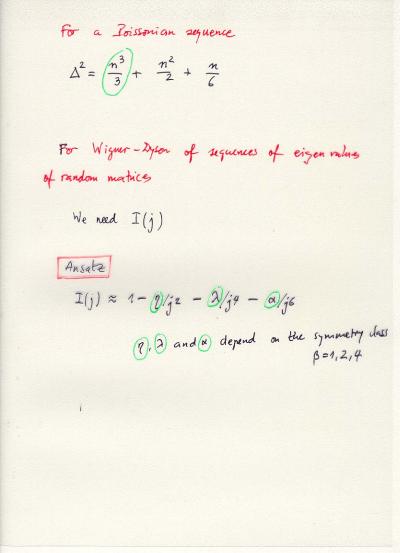 For a Poissonian sequence
Δ² = n³/3 + n²/2 + n/6
For Wigner-Dyson of sequences of eigenvalues
of random matrices
We need I(j)
Ansatz
I(j) ≈ 1 - η/j2 - λ/j4 - α/j6
η, λ and α depend on the symmetry class
β=1,2,4